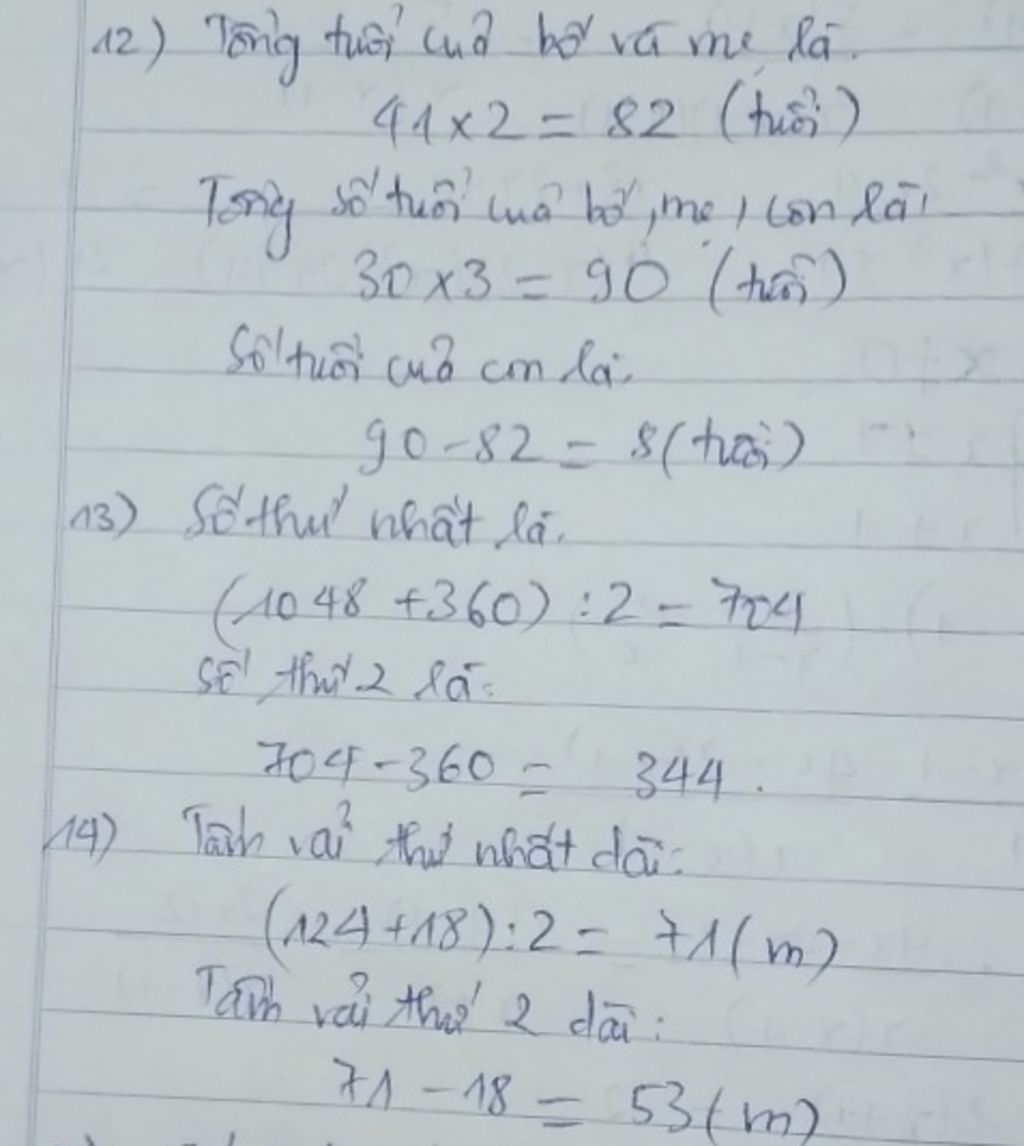 12) Tổng tuổi của bố và mẹ là.
41 × 2 = 82 (tuổi)
Tổng số tuổi của bố, mẹ, con là:
30 × 3 = 90 (tuổi)
Số tuổi của con là:
90 - 82 = 8 (tuổi)
13) Số thứ nhất là.
(1048 + 360) : 2 = 704
Số thứ 2 là:
704 - 360 = 344.
14) Tấm vải thứ nhất dài:
(124 + 18) : 2 = 71 (m)
Tấm vải thứ 2 dài:
71 - 18 = 53 (m)